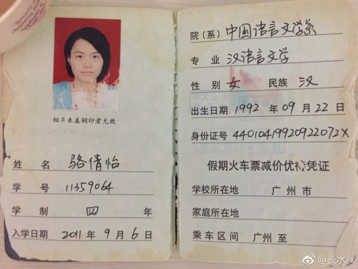 相片未盖钢印者无效
姓名 骆倩怡
学号 11359064
学制 四 年
入学日 2011年9月6日
院(系) 中国语言文学系
专业 汉语言文学
性别 女 民族 汉
出生日期 1992年09月22日
身份证号 44010419920922072X
假期火车票减价优待凭证
学校所在地 广州市
家庭所在地
乘车区间 广州至